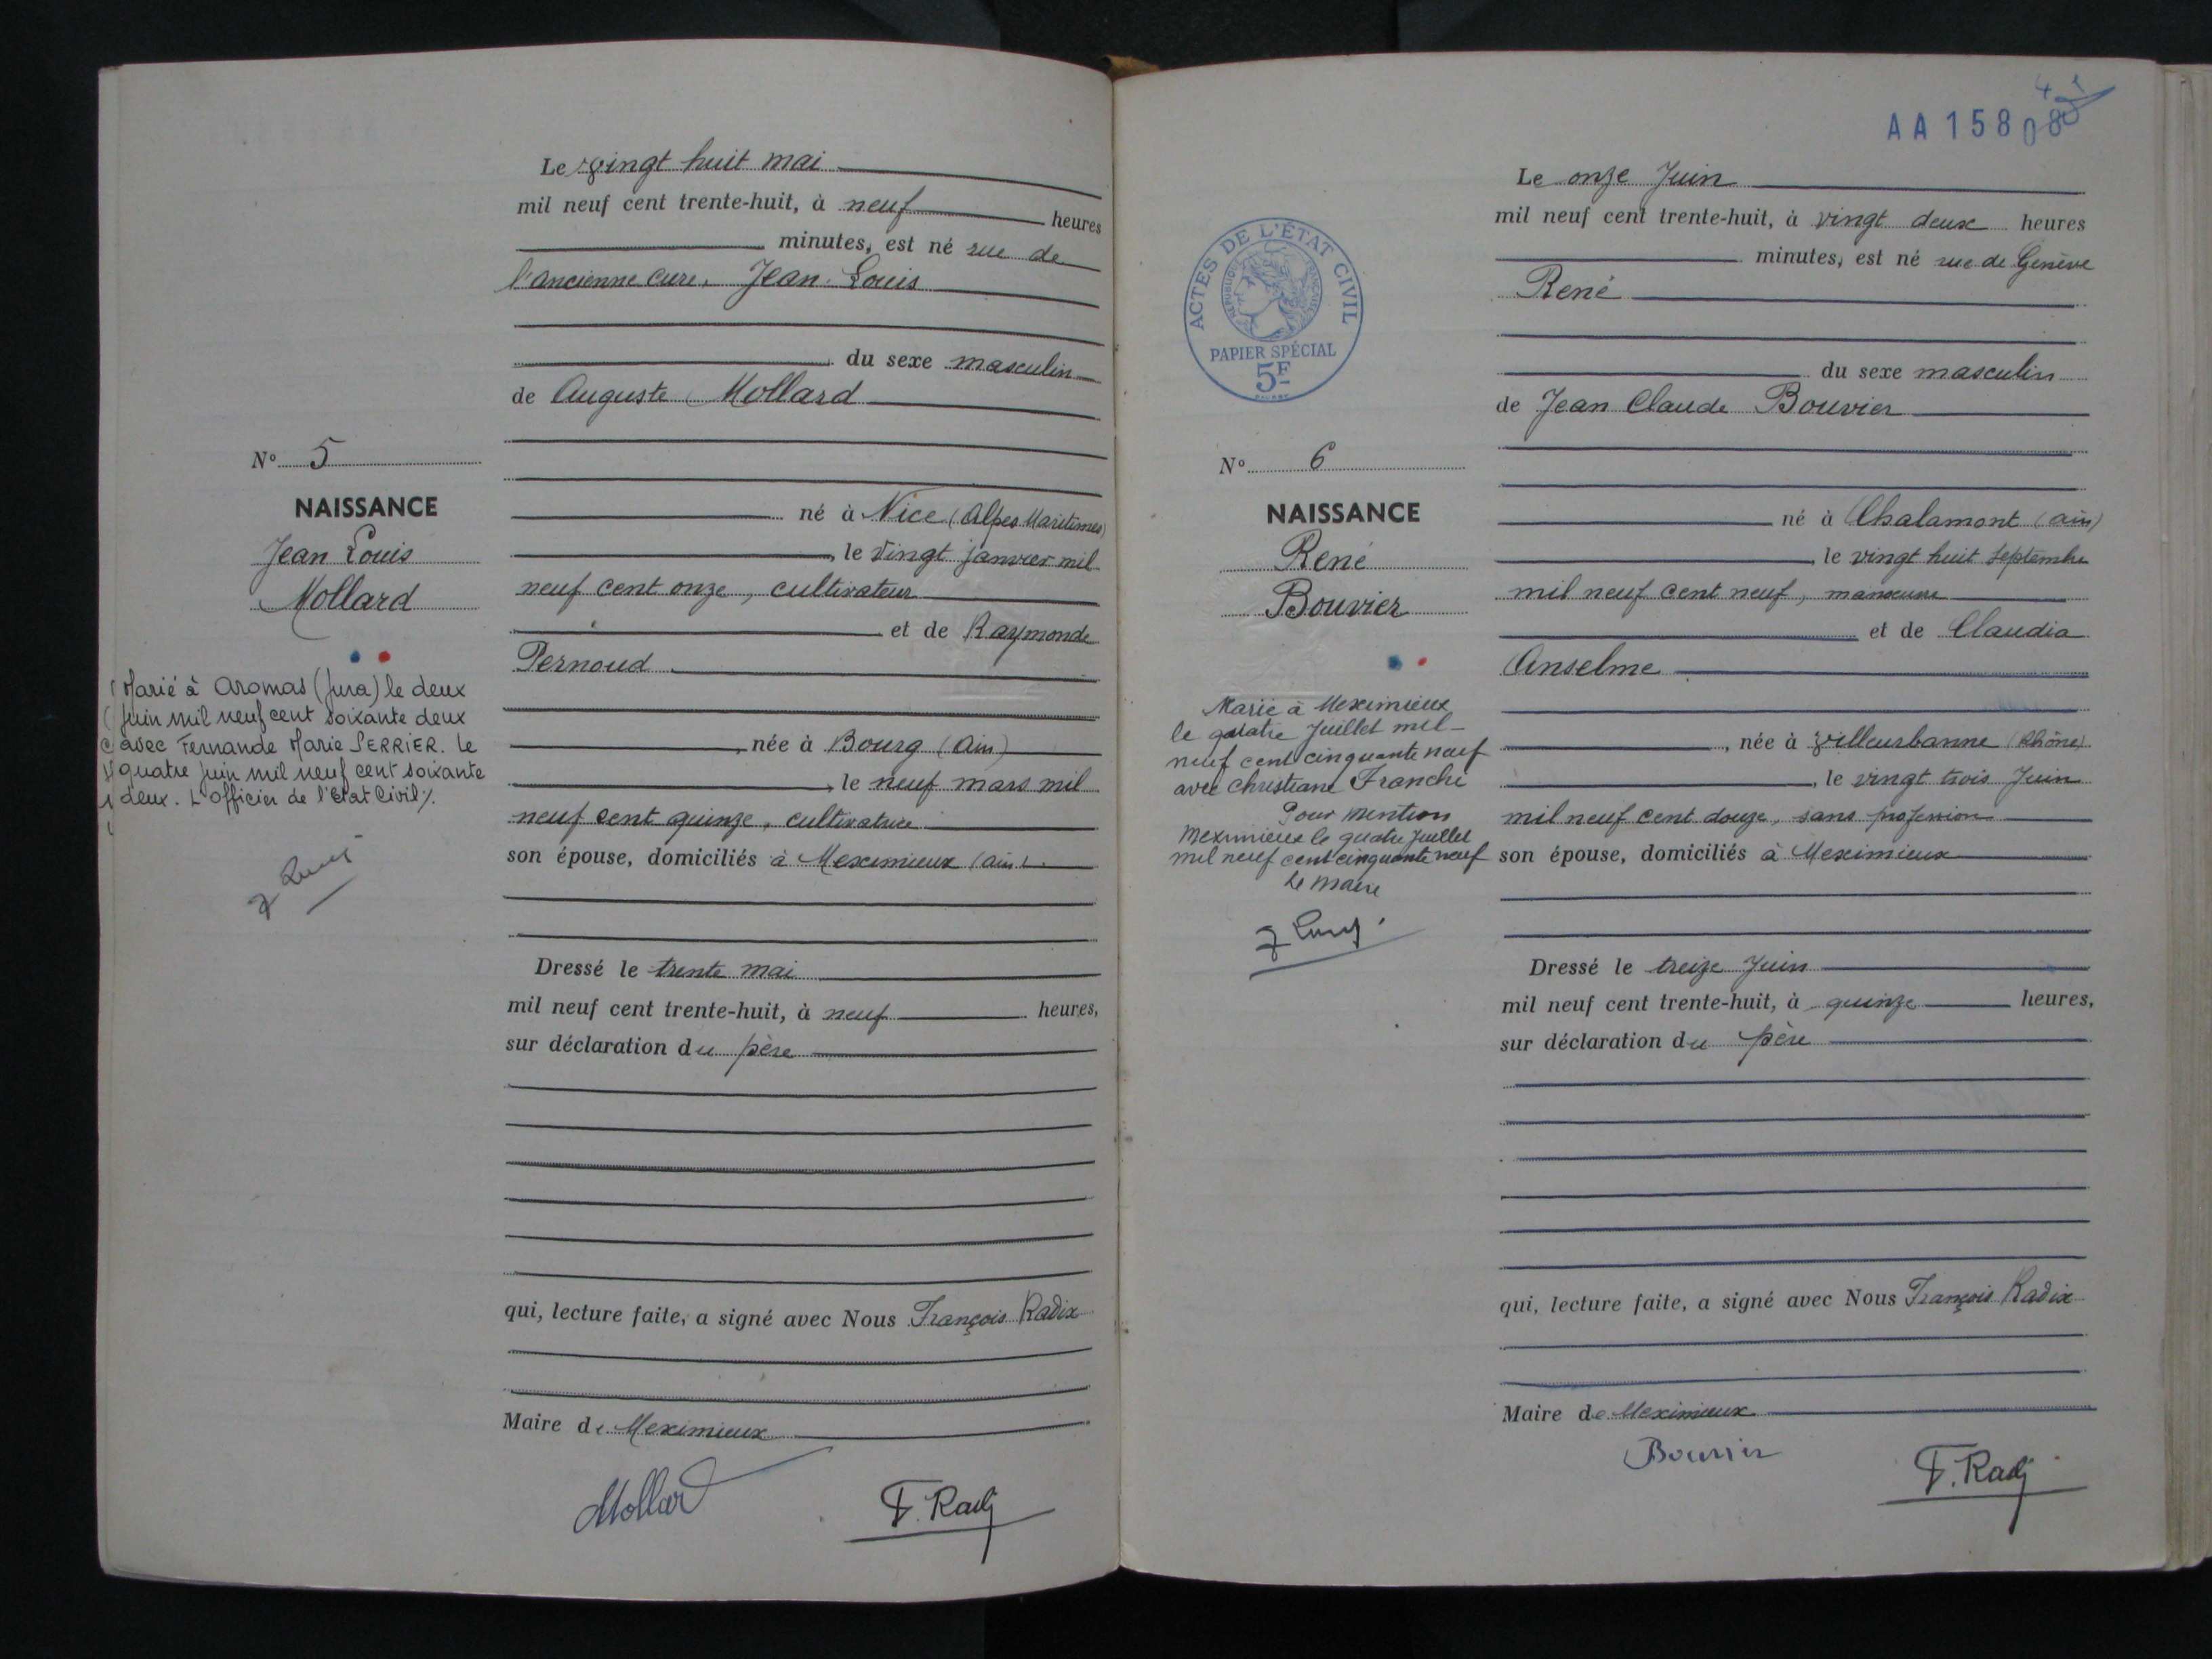 Le vingt huit mai
mil neuf cent trente-huit, à neuf heures
minutes, est né rue de
l'ancienne cure, Jean Louis
du sexe masculin
de Auguste Mollard
né à Nice (Alpes Maritimes)
, le vingt janvier mil
neuf cent onze, cultivateur
et de Raymonde
Pernoud
, née à Bourg (Ain)
, le neuf mars mil
neuf cent quinze, cultivatrice
son épouse, domiciliés à Meximieux (Ain).
Dressé le trente mai
mil neuf cent trente-huit, à neuf heures,
sur déclaration du père
qui, lecture faite, a signé avec Nous François Radix
Maire de Meximieux
Mollard
F. Radix
N° 5
NAISSANCE
Jean Louis
Mollard
Marié à Aromas (Jura) le deux
juin mil neuf cent soixante deux
avec Fernande Marie PERRIER. Le
quatre juin mil neuf cent soixante
deux. L'Officier de l'Etat Civil /.
AA 1580
ACTES DE L'ÉTAT CIVIL
RÉPUBLIQUE FRANÇAISE
PAPIER SPÉCIAL
5F
N° 6
NAISSANCE
René
Bouvier
Marié à Meximieux
le quatre Juillet mil
neuf cent cinquante neuf
avec Christiane Franchi
Pour mention
Meximieux le quatre Juillet
mil neuf cent cinquante neuf
Le maire
Le onze Juin
mil neuf cent trente-huit, à vingt deux heures
minutes, est né rue de Genève
René
du sexe masculin
de Jean Claude Bouvier
né à Chalamont (Ain)
, le vingt huit Septembre
mil neuf cent neuf, manoeuvre
et de Claudia
Anselme
, née à Villeurbanne (Rhône)
, le vingt trois Juin
mil neuf cent douze, sans profession
son épouse, domiciliés à Meximieux
Dressé le treize Juin
mil neuf cent trente-huit, à quinze heures,
sur déclaration du père
qui, lecture faite, a signé avec Nous François Radix
Maire de Meximieux
Bouvier
F. Radix